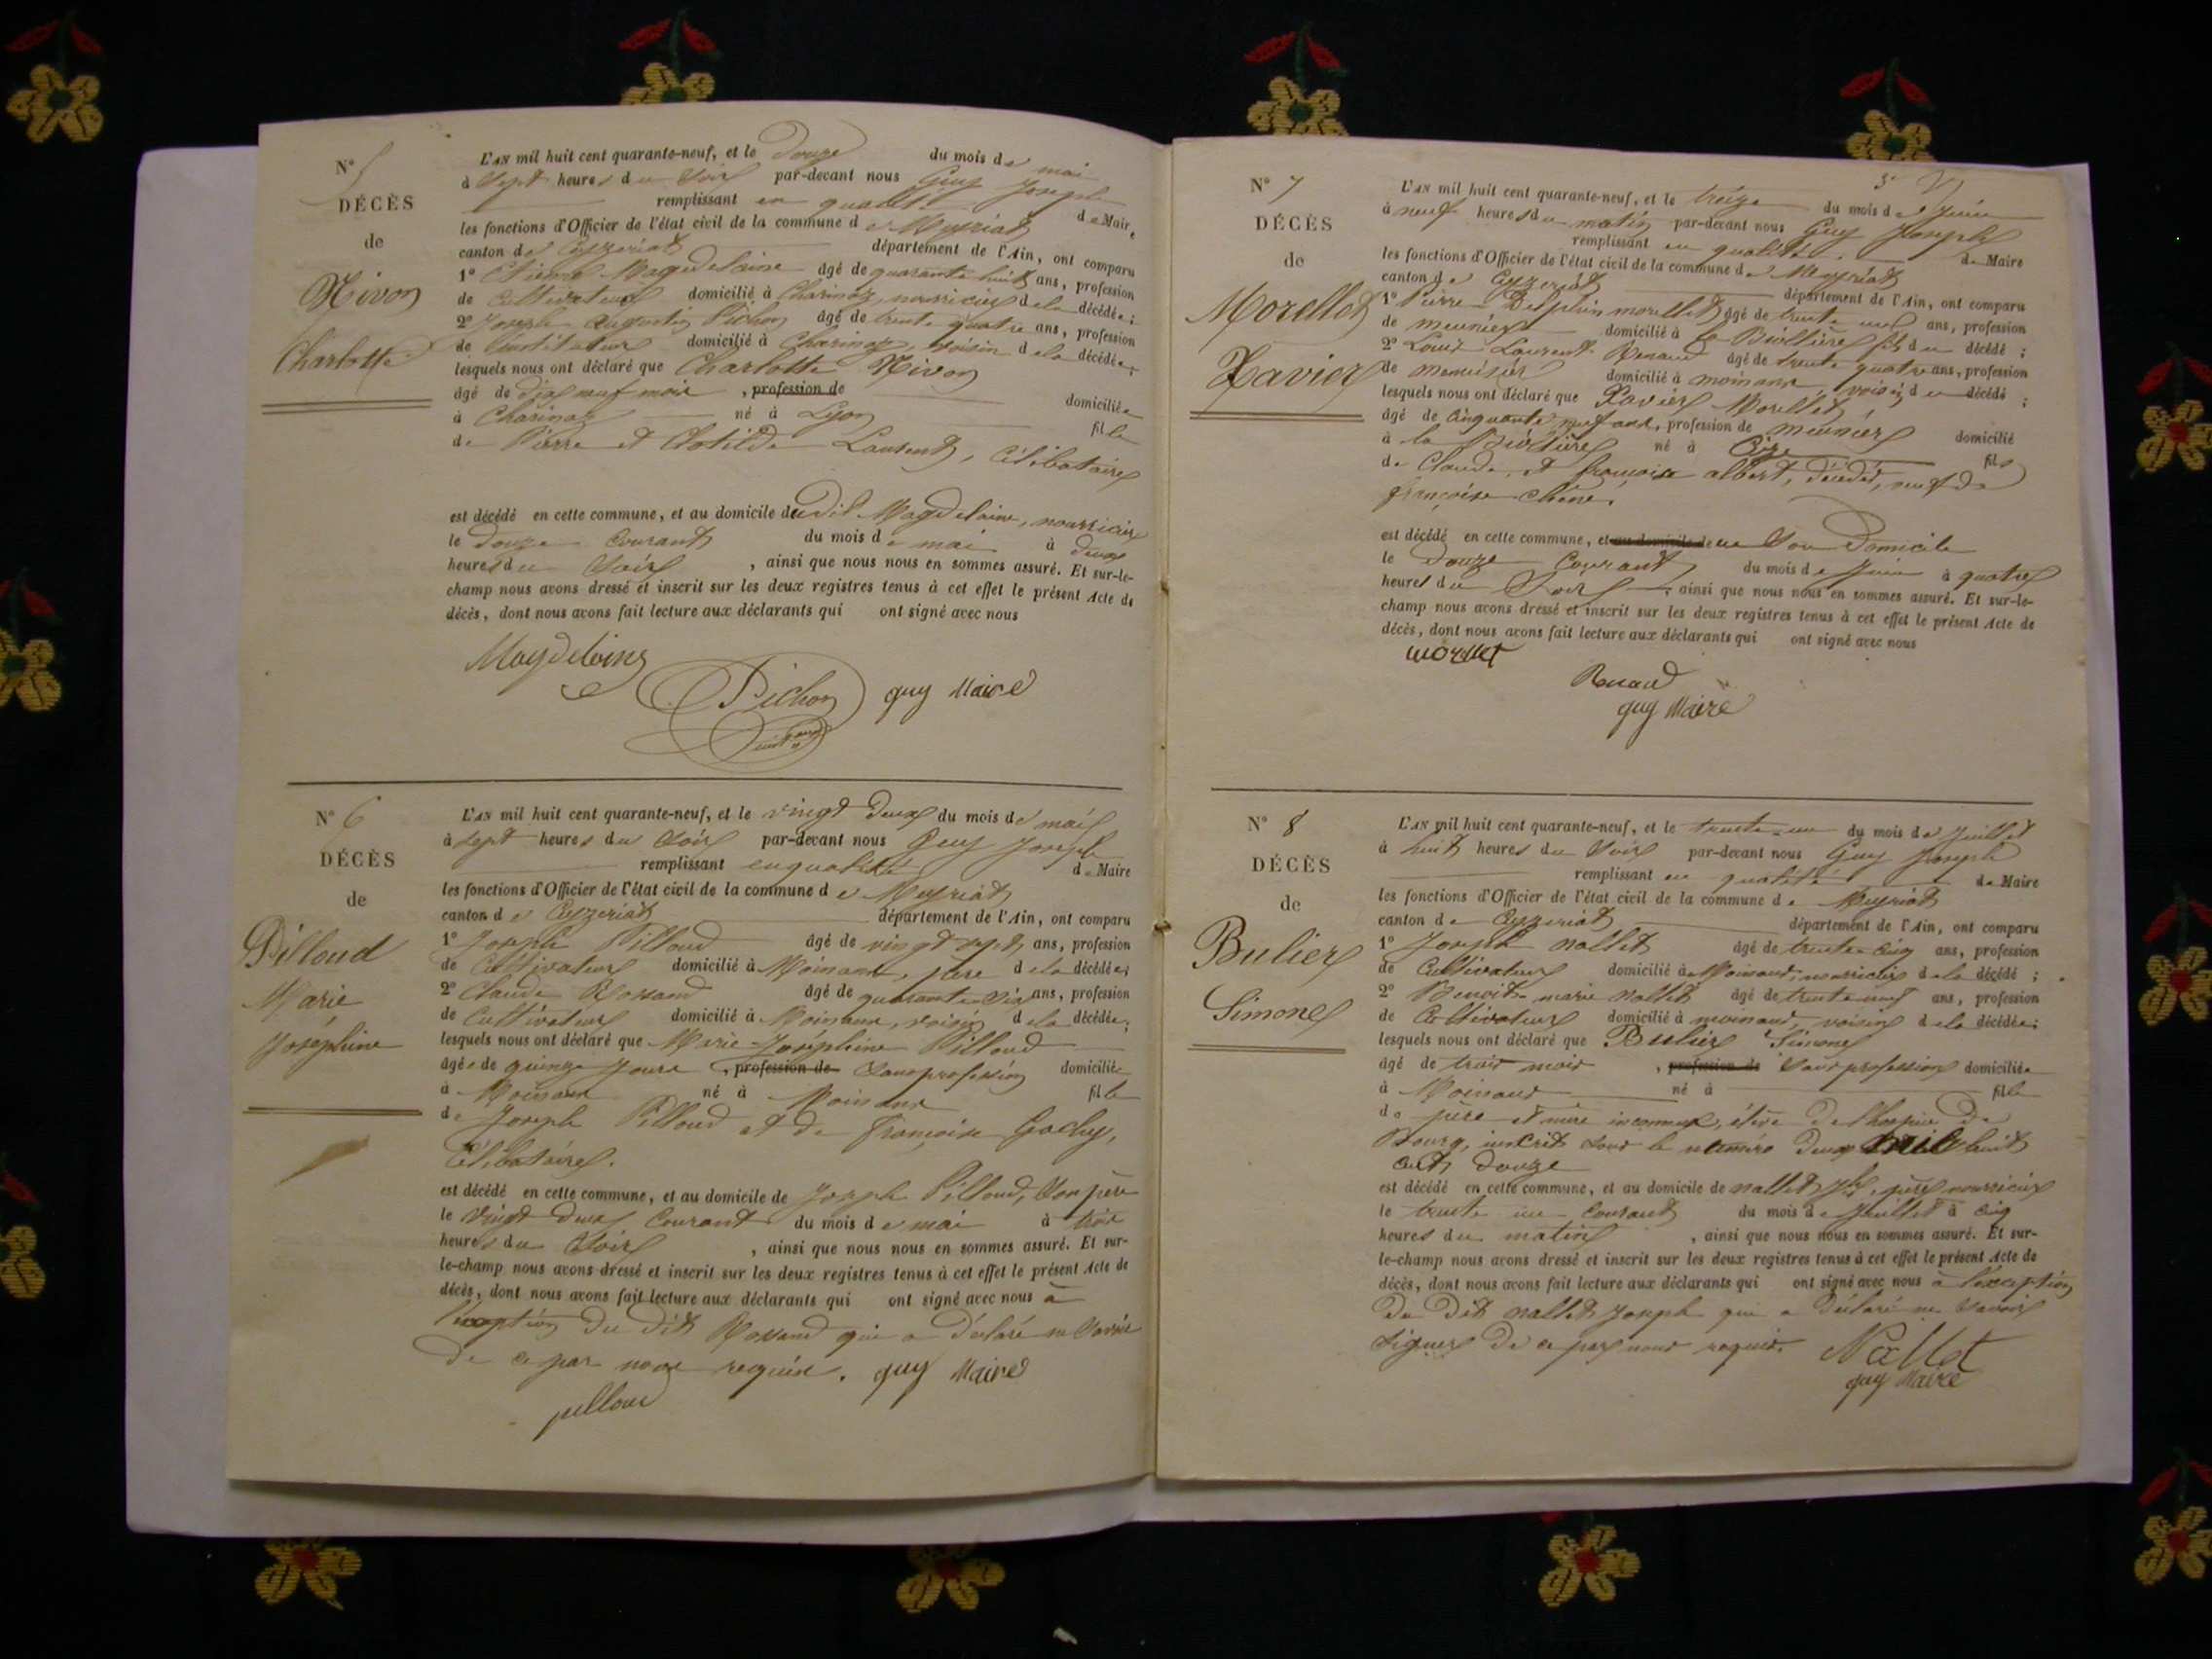 N° 5
DÉCÈS
de
Nivon
Charlotte
L'AN mil huit cent quarante-neuf, et le Douze du mois de mai
à Sept heures du Soir par-devant nous Guy Joseph
remplissant en qualité de Maire
les fonctions d'Officier de l'état civil de la commune de Meyriat
canton de Ceyzeriat département de l'Ain, ont comparu
1° Magdelaine âgé de quarante huit ans, profession
de Cultivateur domicilié à Charinaz, nourricier de la décédée;
2° Joseph Augustin Pichon âgé de trente quatre ans, profession
de Instituteur domicilié à Charinaz, voisin de la décédée;
lesquels nous ont déclaré que Charlotte Nivon
âgé de Dix neuf mois , profession de domiciliée
à Charinaz né à Lyon fille
de Pierre et Clotilde Laurent, Célibataire
est décédé en cette commune, et au domicile du Dit Magdelaine, nourricier
le Douze Courant du mois de mai à Deux
heures du Soir , ainsi que nous nous en sommes assuré. Et sur-le-
champ nous avons dressé et inscrit sur les deux registres tenus à cet effet le présent Acte de
décès, dont nous avons fait lecture aux déclarants qui ont signé avec nous
Magdelaine
Pichon guy Maire
N° 6
DÉCÈS
de
Pilloud
Marie
Joséphine
L'AN mil huit cent quarante-neuf, et le vingt Deux du mois de mai
à Sept heures du Soir par-devant nous Guy Joseph
remplissant en qualité de Maire
les fonctions d'Officier de l'état civil de la commune de Meyriat
canton de Ceyzeriat département de l'Ain, ont comparu
1° Joseph Pilloud âgé de vingt sept ans, profession
de Cultivateur domicilié à Moinans, père de la décédée;
2° Claude Rossand âgé de quarante Six ans, profession
de Cultivateur domicilié à Moinans, voisin de la décédée;
lesquels nous ont déclaré que Marie Josephine Pilloud
âgée de quinze Jours , profession de Sans profession domiciliée
à Moinans né à Moinans fille
de Joseph Pilloud et de françoise Gochy,
Célibataire.
est décédé en cette commune, et au domicile de Joseph Pilloud, Son père
le Vingt Deux Courant du mois de mai à trois
heures du Soir , ainsi que nous nous en sommes assuré. Et sur-
le-champ nous avons dressé et inscrit sur les deux registres tenus à cet effet le présent Acte de
décès, dont nous avons fait lecture aux déclarants qui ont signé avec nous à
l'exception du Dit Rossand qui a Déclaré ne Savoir
De ce par nous requis. guy Maire
pilloud
N° 7
DÉCÈS
de
Morellet
Xavier
L'AN mil huit cent quarante-neuf, et le treize du mois de Juin
à neuf heures du matin par-devant nous Guy Joseph
remplissant en qualité de Maire
les fonctions d'Officier de l'état civil de la commune de Meyriat
canton de Ceyzeriat département de l'Ain, ont comparu
1° Pierre Delphin morellet âgé de trente ans, profession
de meunier domicilié à la fils du décédé ;
2° Louis Laurent Renaud âgé de trente quatre ans, profession
de menuisier domicilié à moinans, voisin du décédé ;
lesquels nous ont déclaré que Xavier Morellet
âgé de Cinquante neuf ans, profession de meunier domicilié
à la né à fils
de Claude et françoise albert, Décédés, veuf de
françoise chêne.
est décédé en cette commune, et au domicile de en Son Domicile
le Douze Courant du mois de Juin à quatre
heures du Soir , ainsi que nous nous en sommes assuré. Et sur-le-
champ nous avons dressé et inscrit sur les deux registres tenus à cet effet le présent Acte de
décès, dont nous avons fait lecture aux déclarants qui ont signé avec nous
morellet
Renaud
guy Maire
N° 8
DÉCÈS
de
Bulier
Simone
L'AN mil huit cent quarante-neuf, et le trente-un du mois de Juillet
à huit heures du Soir par-devant nous Guy Joseph
remplissant en qualité de Maire
les fonctions d'Officier de l'état civil de la commune de Meyriat
canton de Ceyzeriat département de l'Ain, ont comparu
1° Joseph nallet âgé de trente Cinq ans, profession
de Cultivateur domicilié à Moinans nourricier de la décédé ;
2° Benoit-marie Nallet âgé de trente neuf ans, profession
de Cultivateur domicilié à moinans, voisin de la décédée;
lesquels nous ont déclaré que Bulier Simone
âgé de trois mois , profession de Sans profession domiciliée
à Moinans né à fille
de père et mère inconnus, élève de l'hospice De
Bourg, inscrit Sous le numéro Deux mil huit
cents Douze
est décédé en cette commune, et au domicile de nallet Jph, père nourricier
le trente un Courant du mois de Juillet à Cinq
heures du matin , ainsi que nous nous en sommes assuré. Et sur-
le-champ nous avons dressé et inscrit sur les deux registres tenus à cet effet le présent Acte de
décès, dont nous avons fait lecture aux déclarants qui ont signé avec nous à l'exception
Du Dit nallet Joseph qui a Déclaré ne Savoir
Signer De ce par nous requis. Nallet
guy Maire